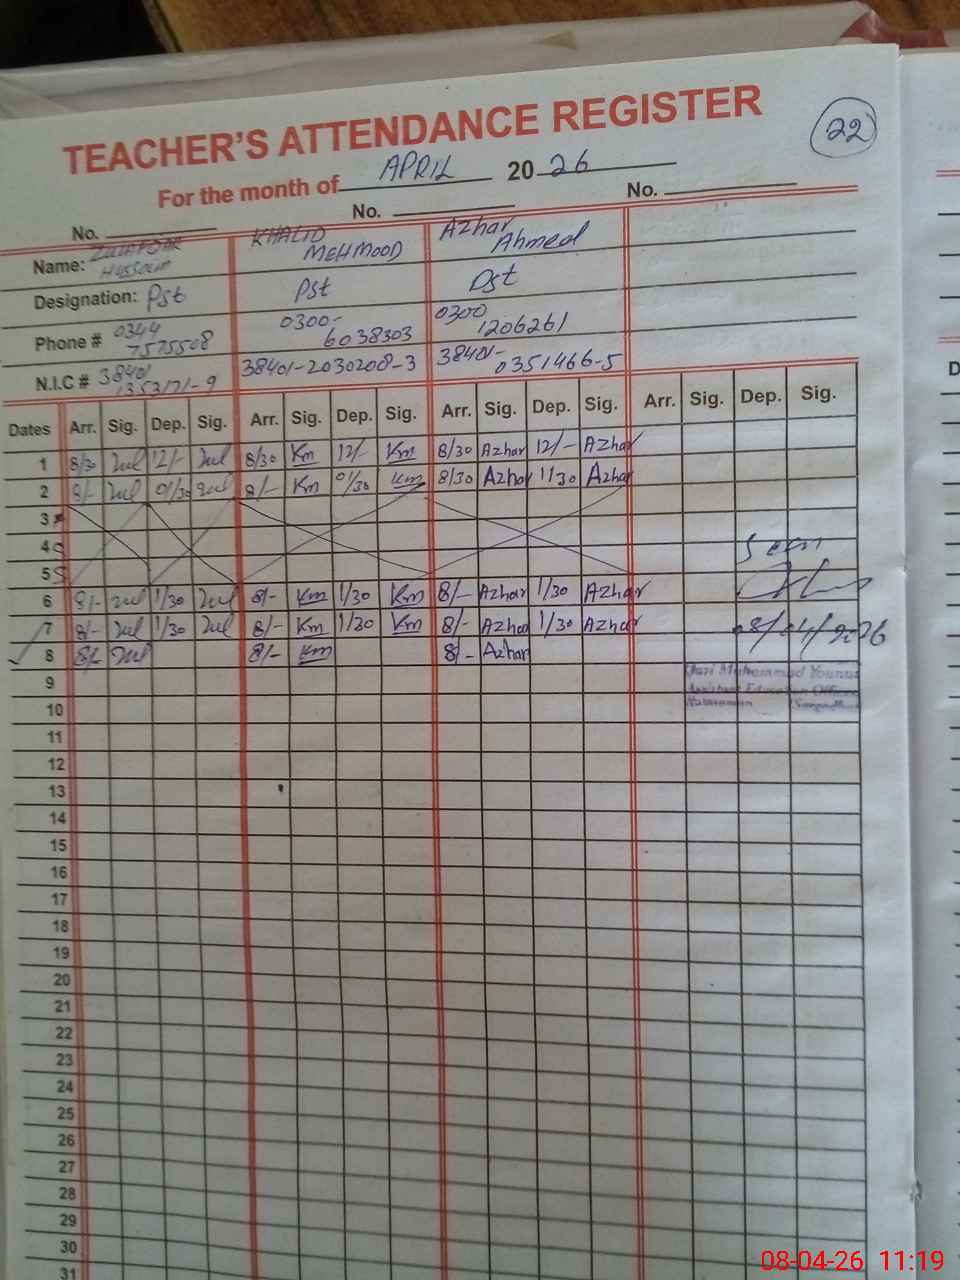 22
TEACHER'S ATTENDANCE REGISTER
For the month of APRIL 2026
No. No. No.
Name: ZULAFQAR HUSSAIN KHALID MEHMOOD Azhar Ahmed
Designation: Pst Pst Pst
Phone # 0344 7575508 0300- 6038303 0300 1206261
N.I.C # 38401 1353171-9 38401-2030208-3 38401- 0351466-5
Dates Arr. Sig. Dep. Sig. Arr. Sig. Dep. Sig. Arr. Sig. Dep. Sig. Arr. Sig. Dep. Sig.
1 8/30 Zul 12/- Zul 8/30 Km 12/- Km 8/30 Azhar 12/- Azhar
2 8/- Zul 01/30 Zul 8/- Km 01/30 Km 8/30 Azhar 1/30 Azhar
3
4
5
6 8/- Zul 1/30 Zul 8/- Km 1/30 Km 8/- Azhar 1/30 Azhar
7 8/- Zul 1/30 Zul 8/- Km 1/30 Km 8/- Azhar 1/30 Azhar 08/04/2026
8 8/- Zul 8/- Km 8/- Azhar
9 Qazi Muhammad Younus
Assistant Education Officer
10
11
12
13
14
15
16
17
18
19
20
21
22
23
24
25
26
27
28
29
30
31
D
08-04-26 11:19